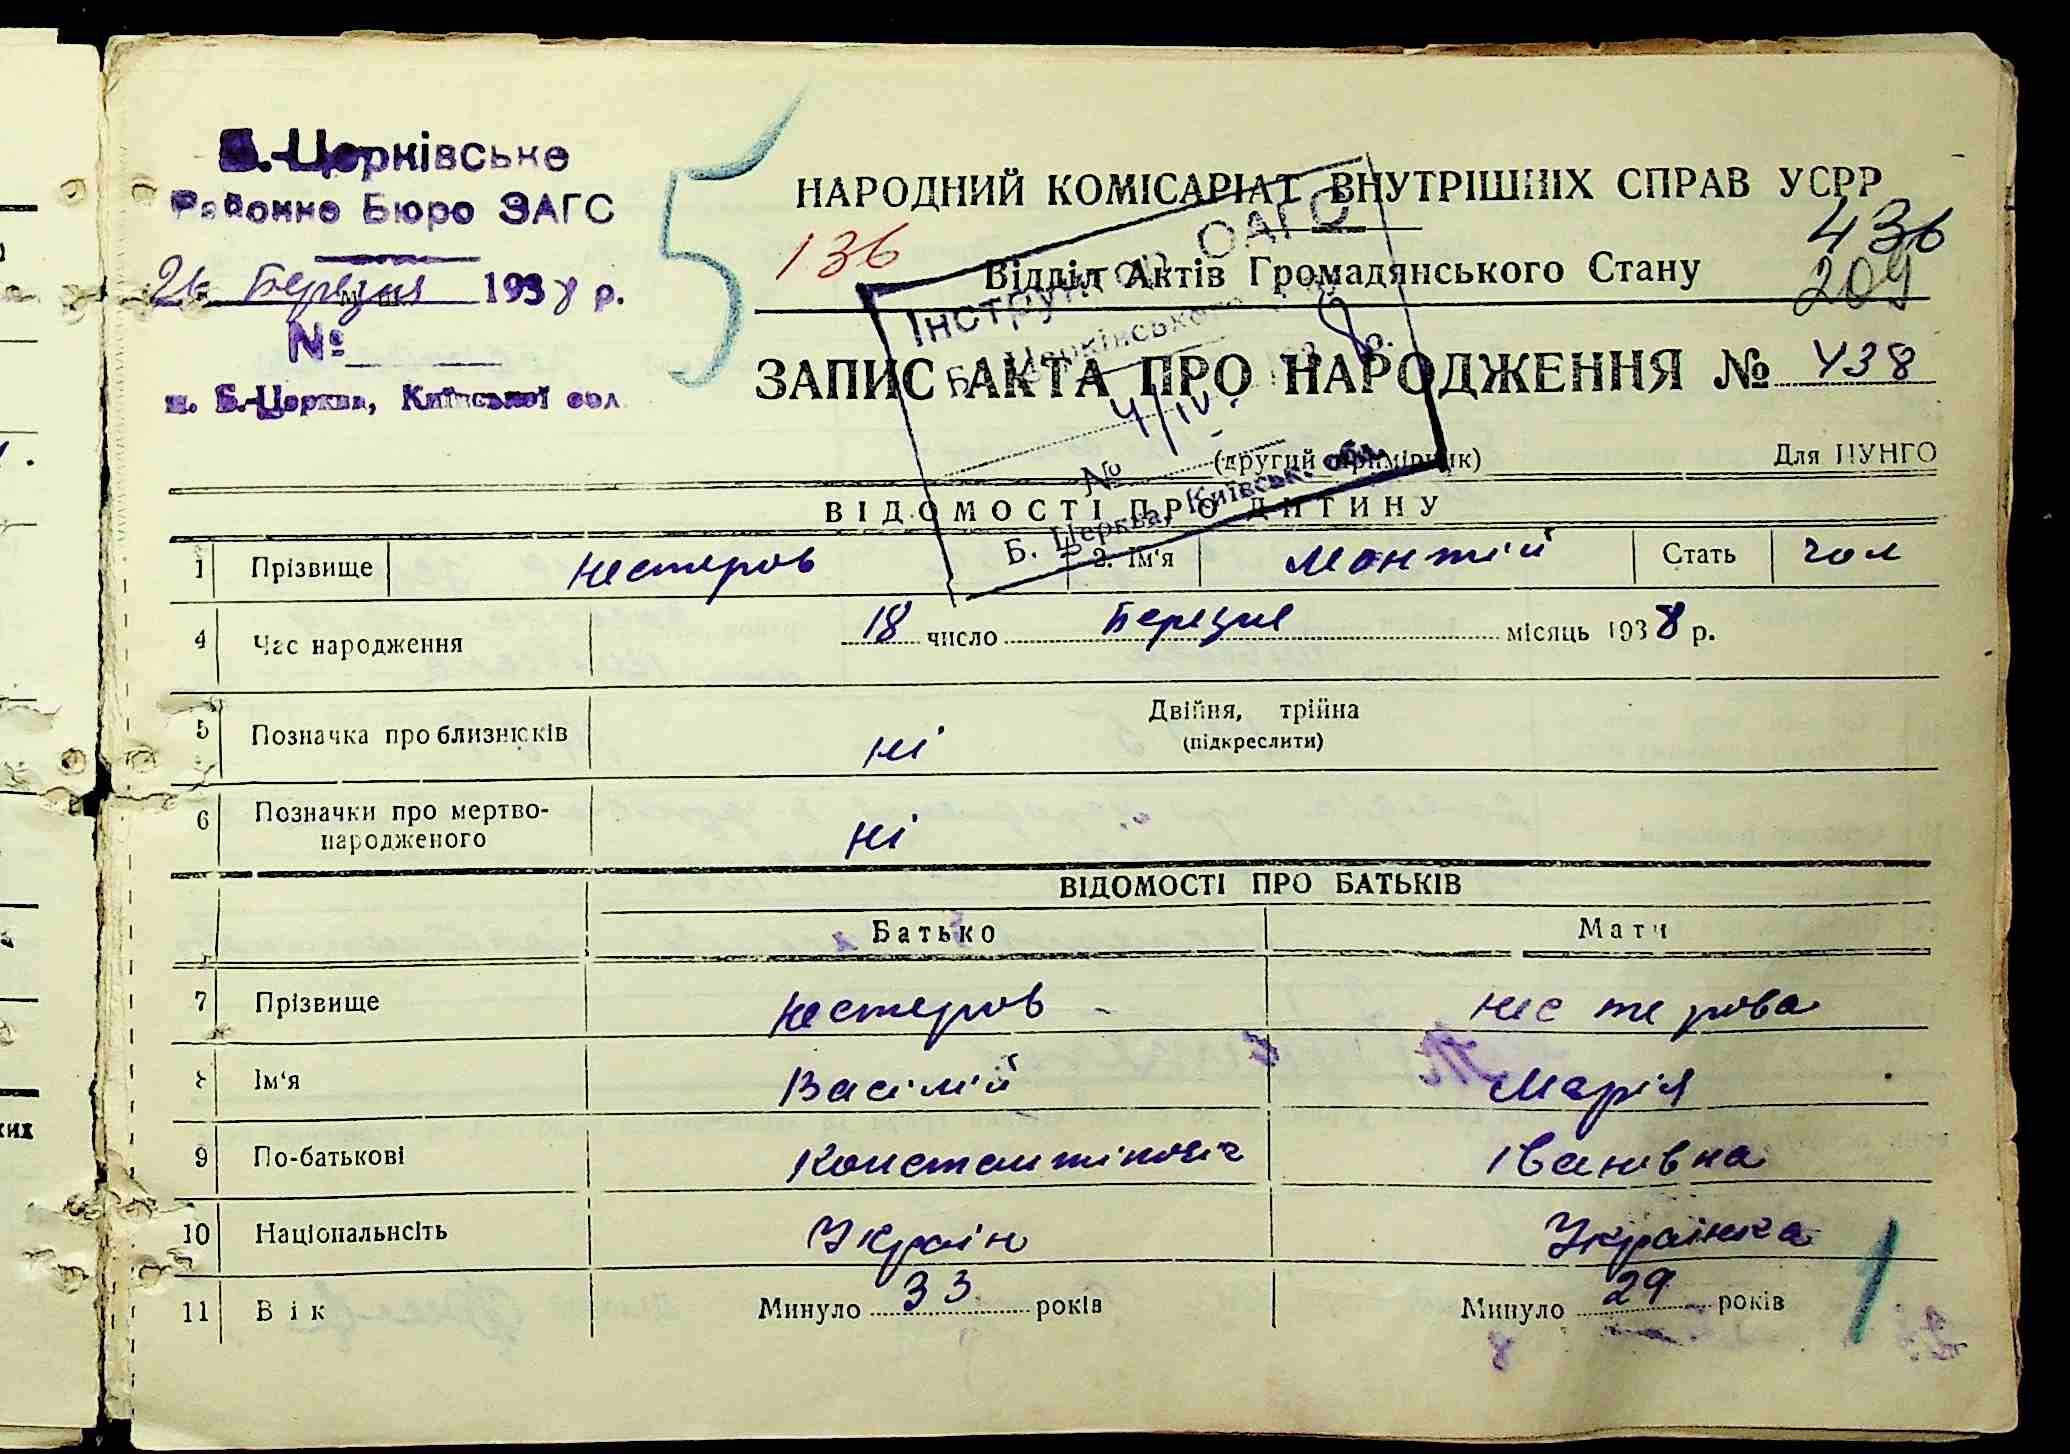 Б.-Церківське
Районне Бюро ЗАГС
26 Березня 1938 р.
№
м. Б.-Церква, Київської обл.
5
НАРОДНИЙ КОМІСАРІАТ ВНУТРІШНІХ СПРАВ УСРР
136
436
Відділ Актів Громадянського Стану
209
ЗАПИС АКТА ПРО НАРОДЖЕННЯ № 438
Інструктор ОАГС
Б. Церківського
8 р.
4/IV
№
Б. Церква, Київськ. обл.
(другий примірник) Для ЦУНГО
ВІДОМОСТІ ПРО ДИТИНУ
1 Прізвище Нестеров 2. Ім'я Стать чол
4 Час народження 18 число Березня місяць 1938 р.
5 Позначка про близнюків ні Двійня, трійна
(підкреслити)
6 Позначки про мертво-
народженого ні
ВІДОМОСТІ ПРО БАТЬКІВ
Батько Мати
7 Прізвище Нестеров Нестерова
8 Ім'я Васілій Марія
9 По-батькові Константінович Івановна
10 Національність Українка
11 Вік Минуло 33 років Минуло 29 років
1